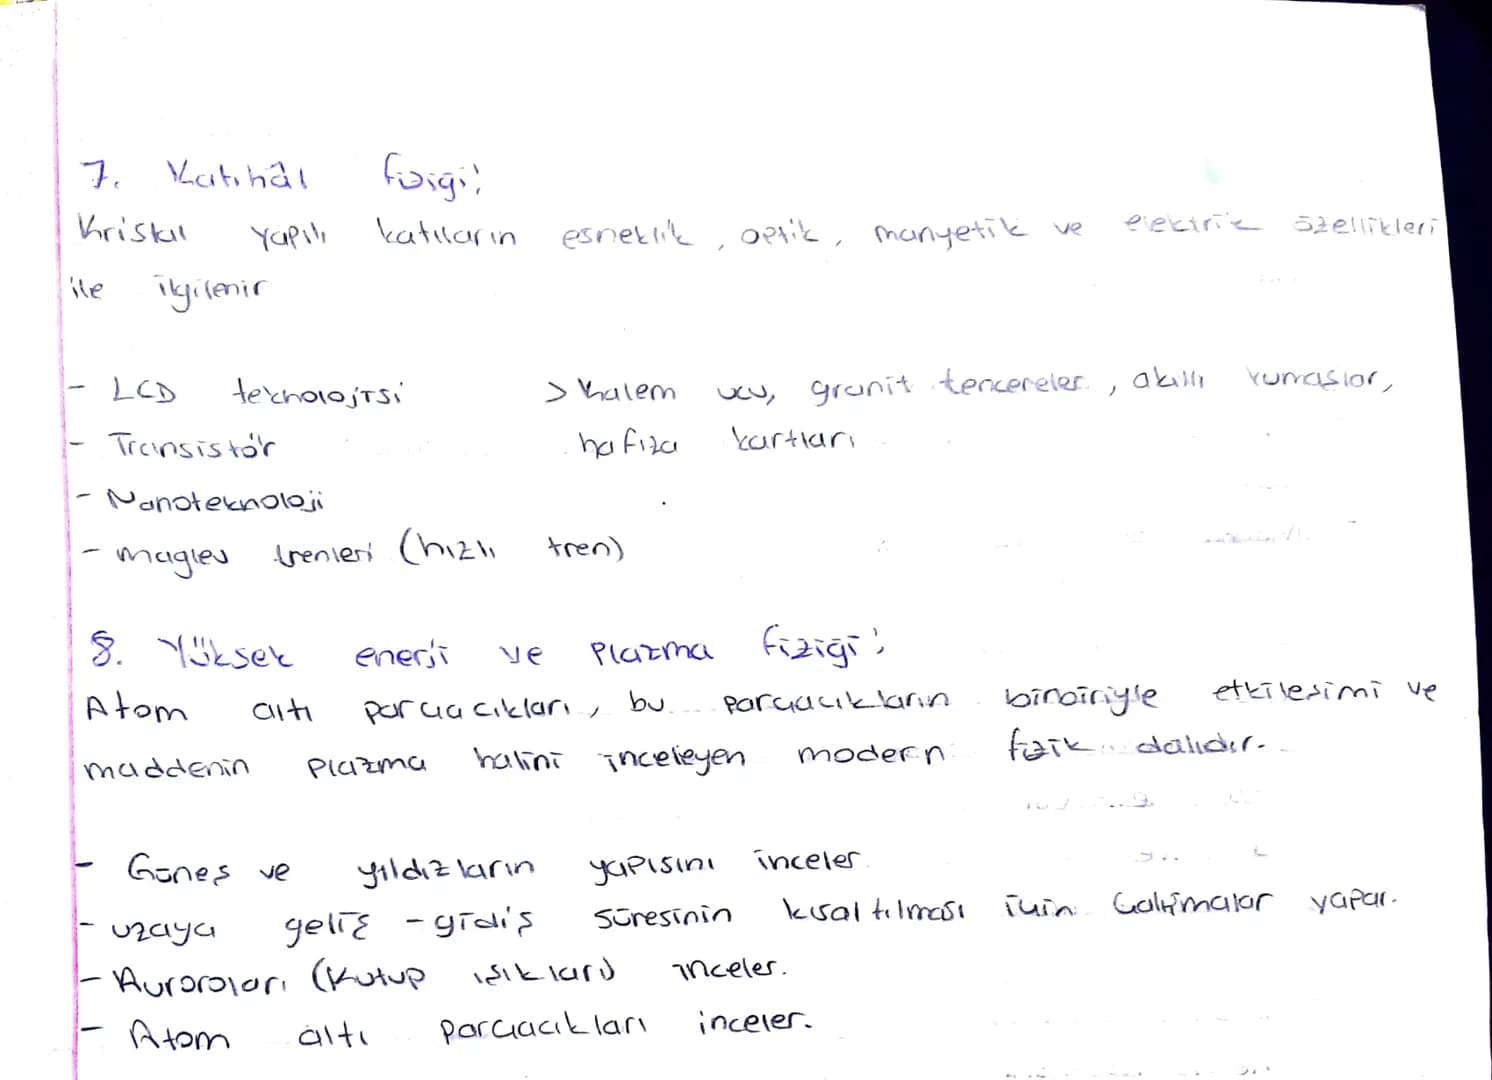 7. Katıhâl fiziği:
Kristal yapılı katıların esneklik, optik, manyetik ve elektrik özellikleri
ile ilgilenir
- LCD teknolojisi > Kalem ucu, granit tencereler, akıllı kumaşlar,
- Transistör hafıza kartları
- Nanoteknoloji
- maglev trenleri (hızlı tren)
8. Yüksek enerji ve Plazma fiziği:
Atom altı parçacıkları, bu parçacıkların birbiriyle etkileşimi ve
maddenin plazma halini inceleyen modern fizik dalıdır.
- Güneş ve yıldızların yapısını inceler.
- uzaya geliş-gidiş süresinin kısaltılması için çalışmalar yapar.
- Auroroları (Kutup ışıkları) inceler.
- Atom altı parçacıkları inceler.